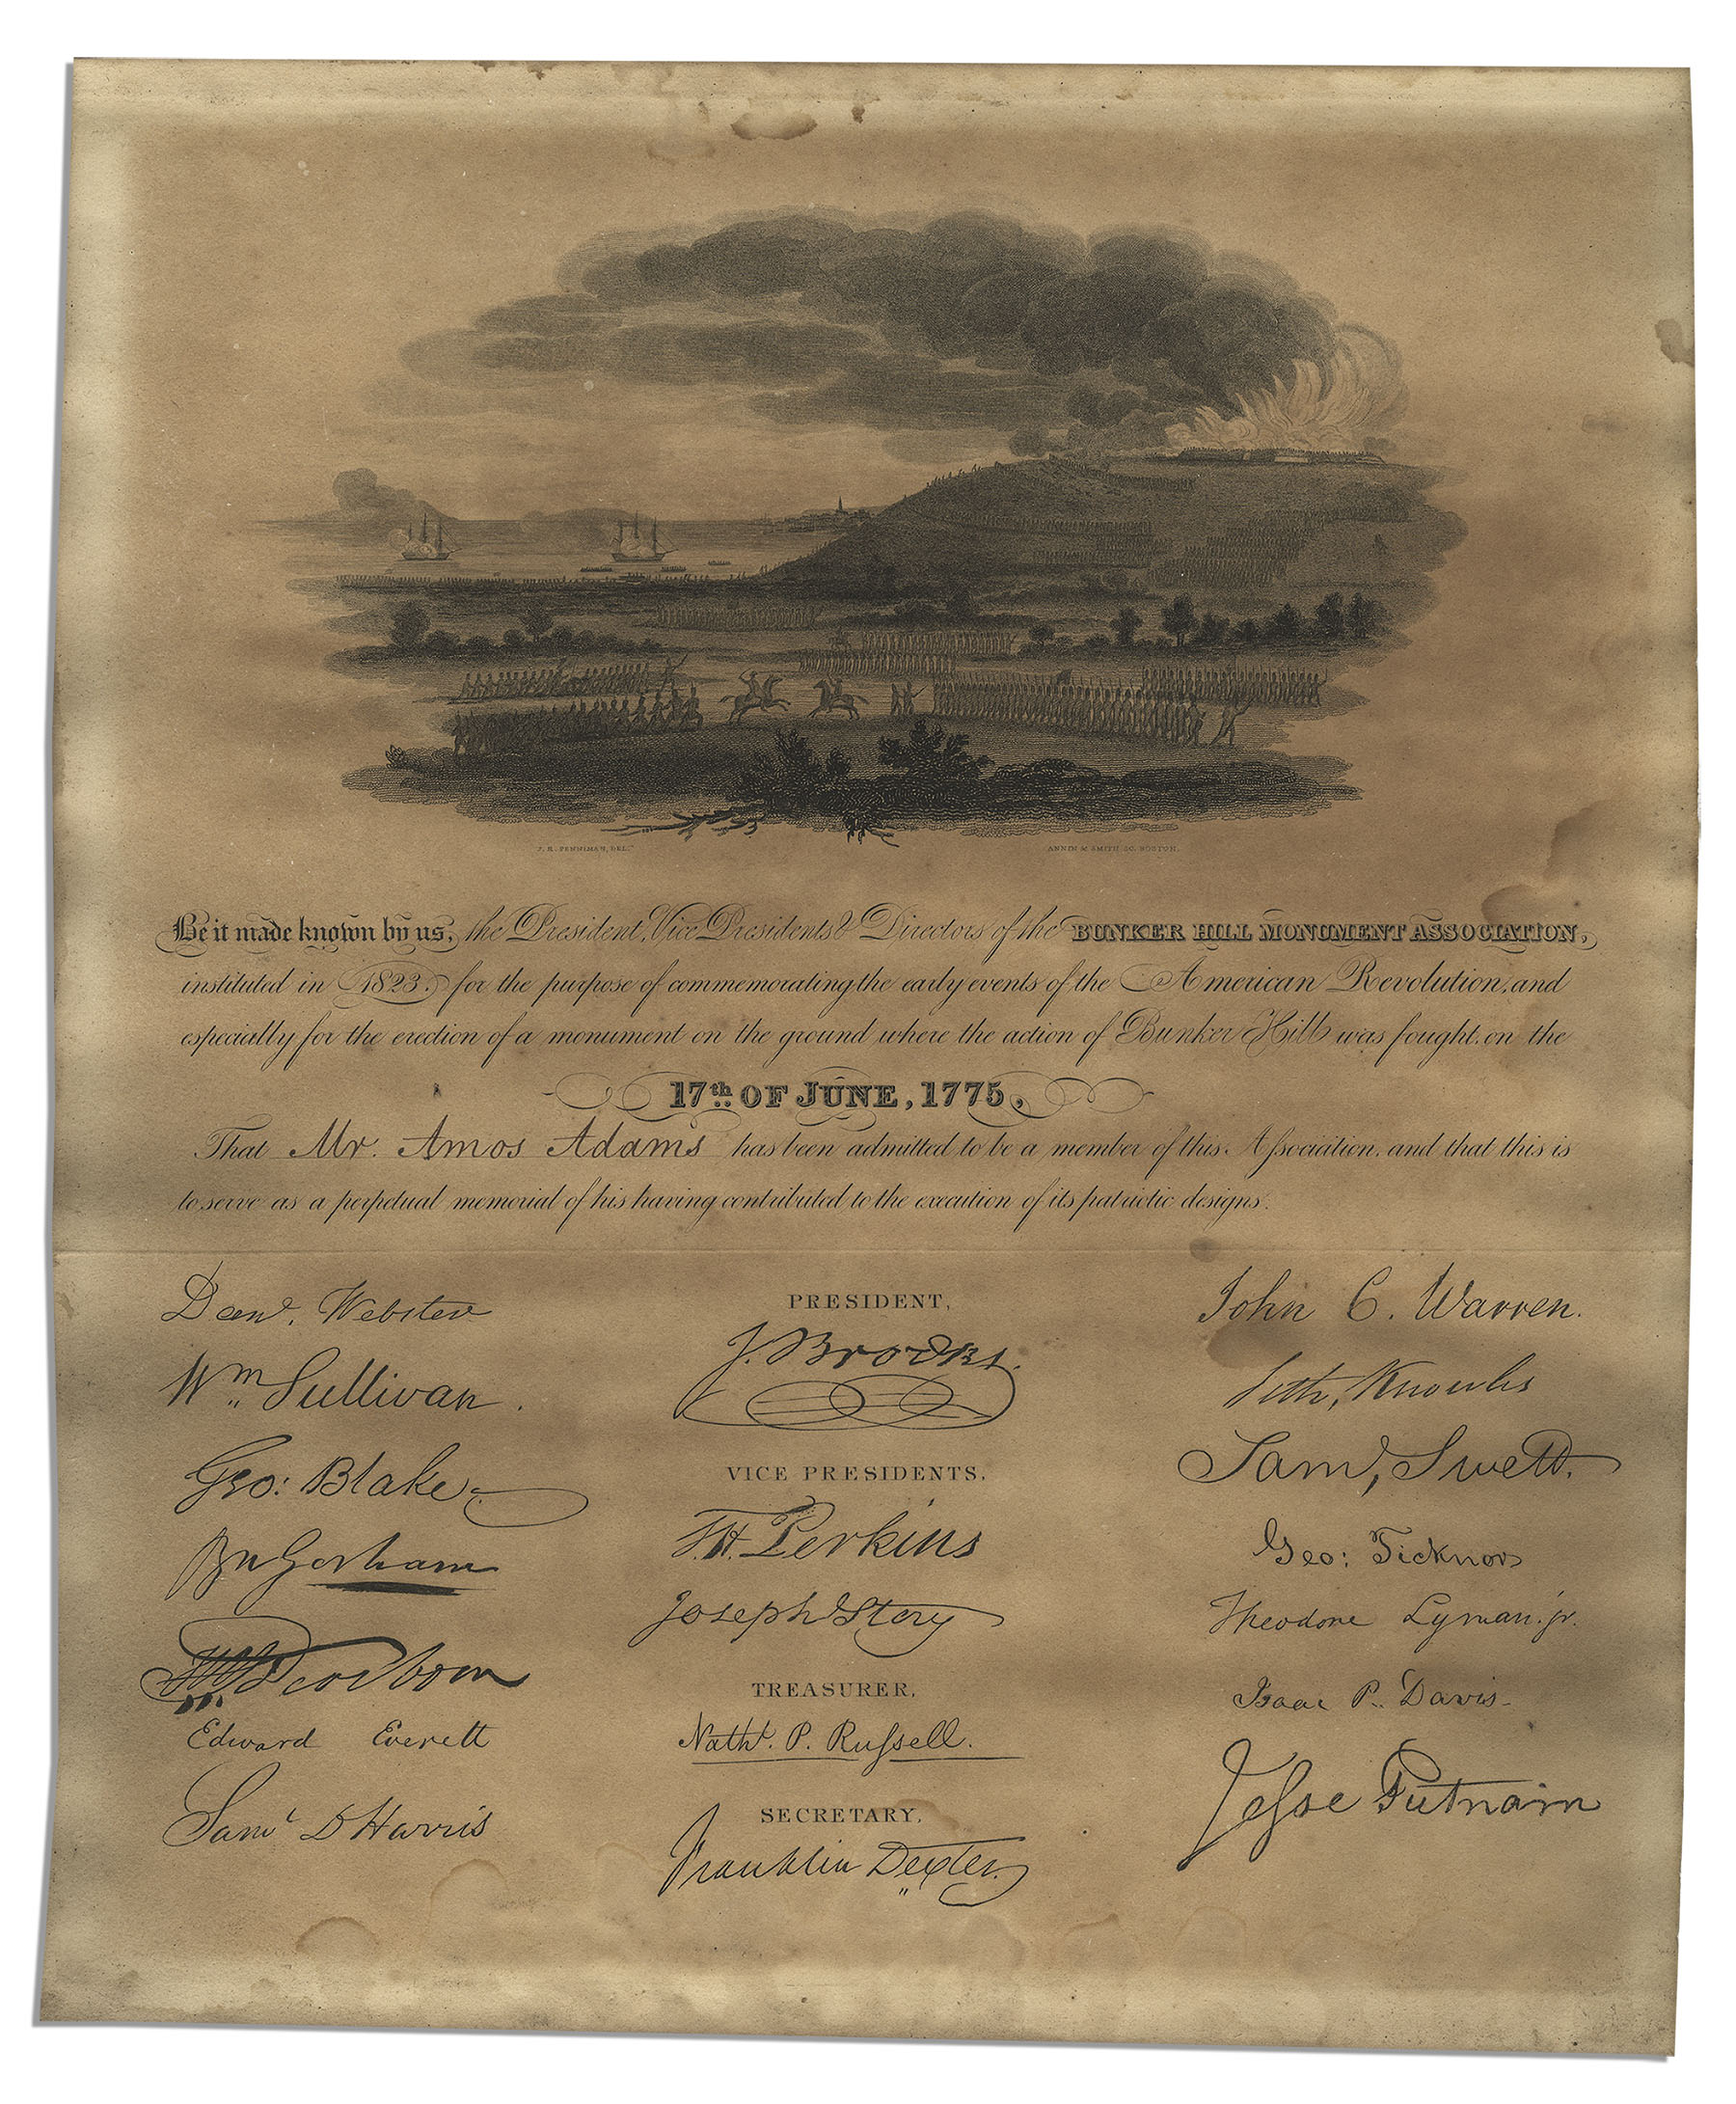 J. R. PENNIMAN, DEL.
ANNIN & SMITH SC. BOSTON.
Be it made known by us, the President, Vice Presidents & Directors of the BUNKER HILL MONUMENT ASSOCIATION,
instituted in 1823. for the purpose of commemorating the early events of the American Revolution, and
especially for the erection of a monument on the ground where the action of Bunker Hill was fought, on the
17th OF JUNE, 1775,
That Mr. Amos Adams has been admitted to be a member of this Association, and that this is
to serve as a perpetual memorial of his having contributed to the execution of its patriotic designs.
Danl. Webster
Wm Sullivan.
Geo: Blake
Bn Gorham
Dearborn
Edward Everett
Saml D Harris
PRESIDENT,
J. Brooks.
VICE PRESIDENTS,
T. H. Perkins
Joseph Story
TREASURER,
Nathl. P. Russell.
SECRETARY,
Franklin Dexter.
John C. Warren.
Seth, Knowles
Saml, Swett.
Geo: Ticknor
Theodore Lyman. jr.
Isaac P. Davis.
Jesse Putnam